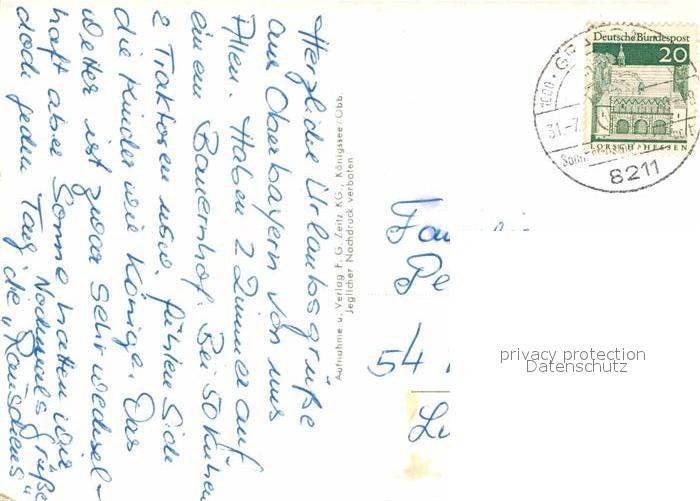 Herzliche Urlaubsgrüße
aus Oberbayern von uns
Allen. Haben 2 Zimmer auf
einem Bauernhof. Bei 50 Kühen
2 Traktoren usw. fühlen sich
die Kinder wie Könige. Das
Wetter ist zwar sehr wechsel-
haft aber Sonne hatten wir
doch jeden Tag
Nochmals Grüße
die „Rauschens"
Aufnahme u. Verlag F. G. Zeitz KG., Königssee/Obb.
Jeglicher Nachdruck verboten
Deutsche Bundespost
20
LORSCH/HESSEN
31.-7.
8211
Fam
Pe
54
Lu
privacy protection
Datenschutz